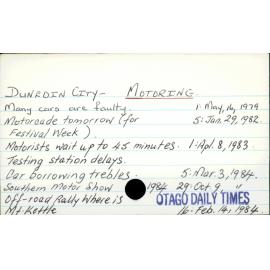 DUNEDIN CITY - MOTORING.
Many cars are faulty. 1. May, 16, 1979
Motorcade tomorrow (for 5. Jan. 29, 1982.
Festival Week).
Motorists wait up to 45 minutes. 1. Apl. 8, 1983.
Testing station delays.
Car borrowing trebles. 5. Mar. 3, 1984.
Southern Motor Show 1984 29. Oct 9, "
Off-road Rally Where is OTAGO DAILY TIMES
Mt Kettle 16. Feb. 14, 1984.